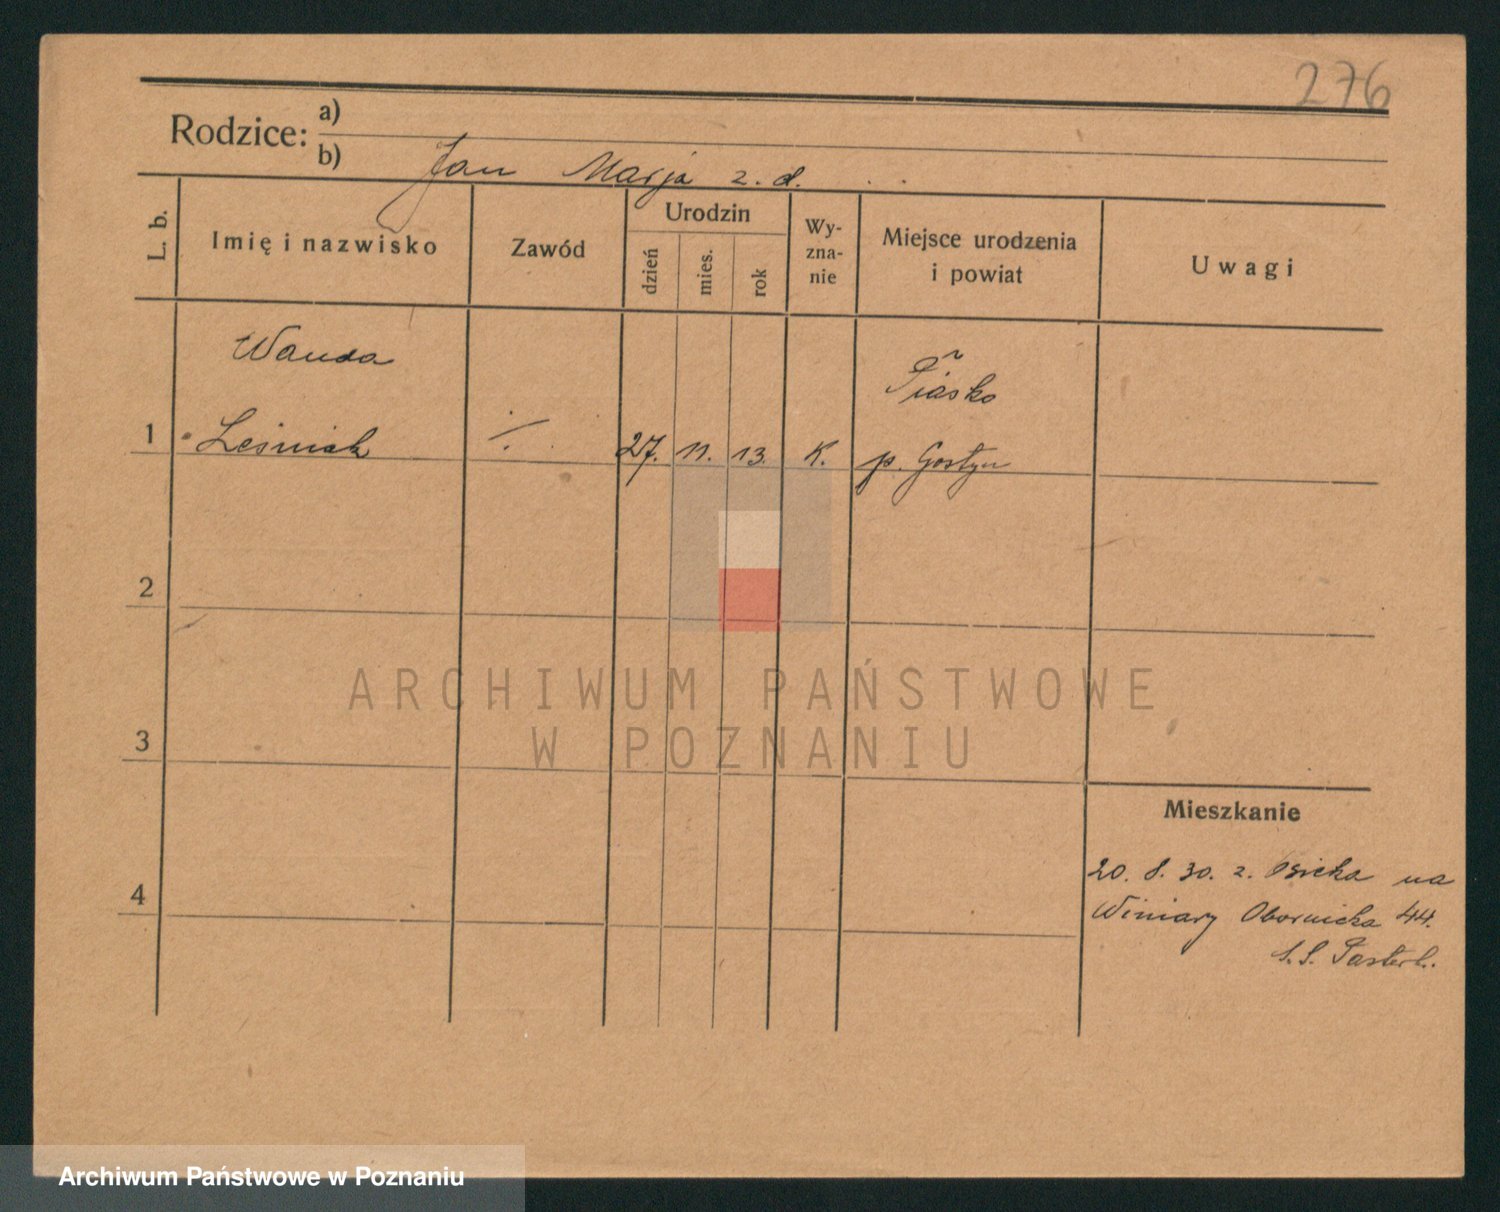 276
Rodzice: a)
b) Jan Marja z. d.
L. b.
Imię i nazwisko
Zawód
Urodzin
dzień
mies.
rok
Wy-
zna-
nie
Miejsce urodzenia
i powiat
Uwagi
Wanda
Piasko
1 Leśniak ./. 27. 11. 13. K. p. Gostyn
2
3
4
ARCHIWUM PAŃSTWOWE
W POZNANIU
Mieszkanie
20. 8. 30. z. Osieka na
Winiary Obornicka 44.
Archiwum Państwowe w Poznaniu